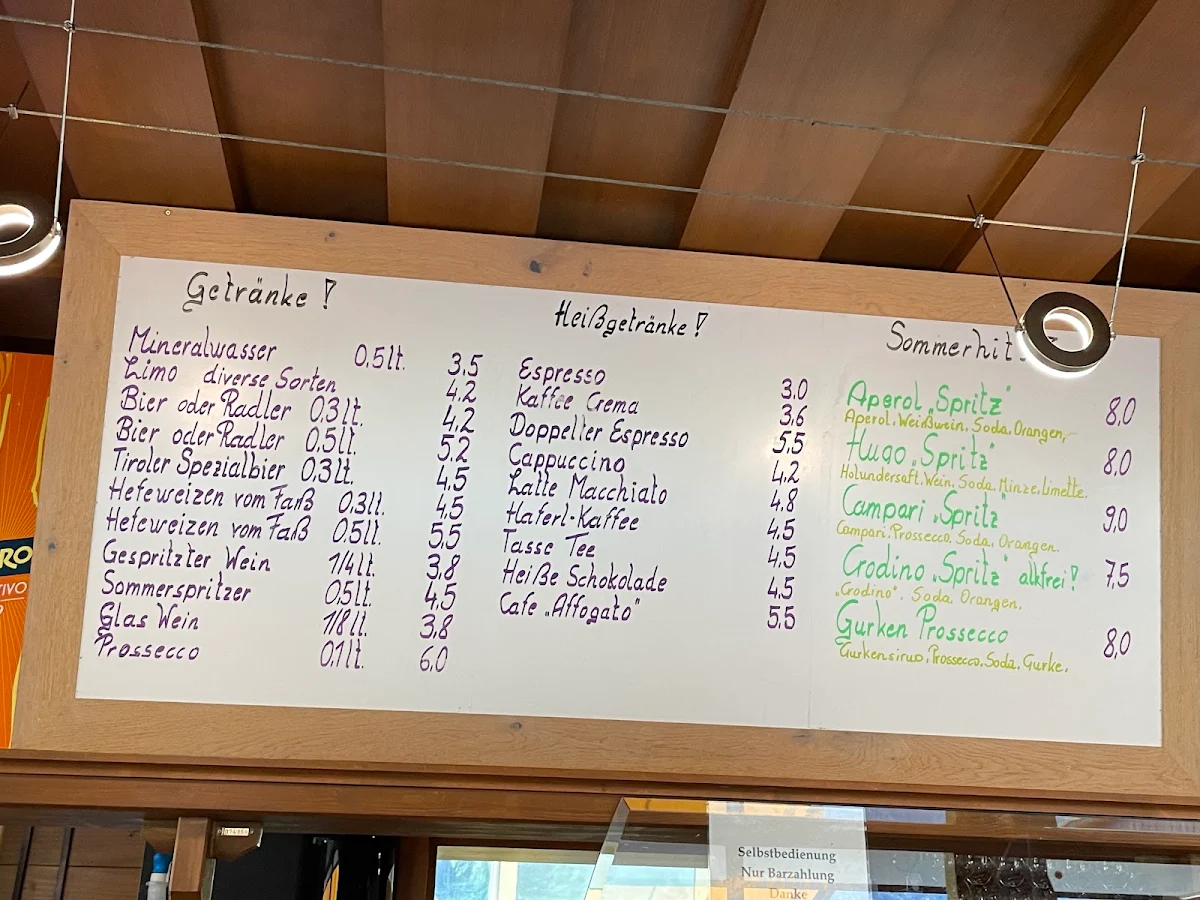 Getränke!
Mineralwasser 0,5lt. 3,5
Limo diverse Sorten 4,2
Bier oder Radler 0,3lt. 4,2
Bier oder Radler 0,5lt. 5,2
Tiroler Spezialbier 0,3lt. 4,5
Hefeweizen vom Faß 0,3lt. 4,5
Hefeweizen vom Faß 0,5lt. 5,5
Gespritzter Wein 1/4lt. 3,8
Sommerspritzer 0,5lt. 4,5
Glas Wein 1/8lt. 3,8
Prossecco 0,1lt. 6,0
Heißgetränke!
Espresso 3,0
Kaffee Crema 3,6
Doppelter Espresso 5,5
Cappuccino 4,2
Latte Macchiato 4,8
Haferl-Kaffee 4,5
Tasse Tee 4,5
Heiße Schokolade 4,5
Cafe „Affogato" 5,5
Aperol „Spritz" 8,0
Aperol, Weißwein, Soda, Orangen,
Hugo „Spritz" 8,0
Holundersaft, Wein, Soda, Minze, Limette.
Campari „Spritz" 9,0
Campari, Prossecco, Soda, Orangen.
Crodino „Spritz" alkfrei! 7,5
„Crodino", Soda, Orangen.
Gurken Prossecco 8,0
Gurkensirup, Prossecco, Soda, Gurke.
RO
TIVO
Selbstbedienung
Nur Barzahlung
Danke